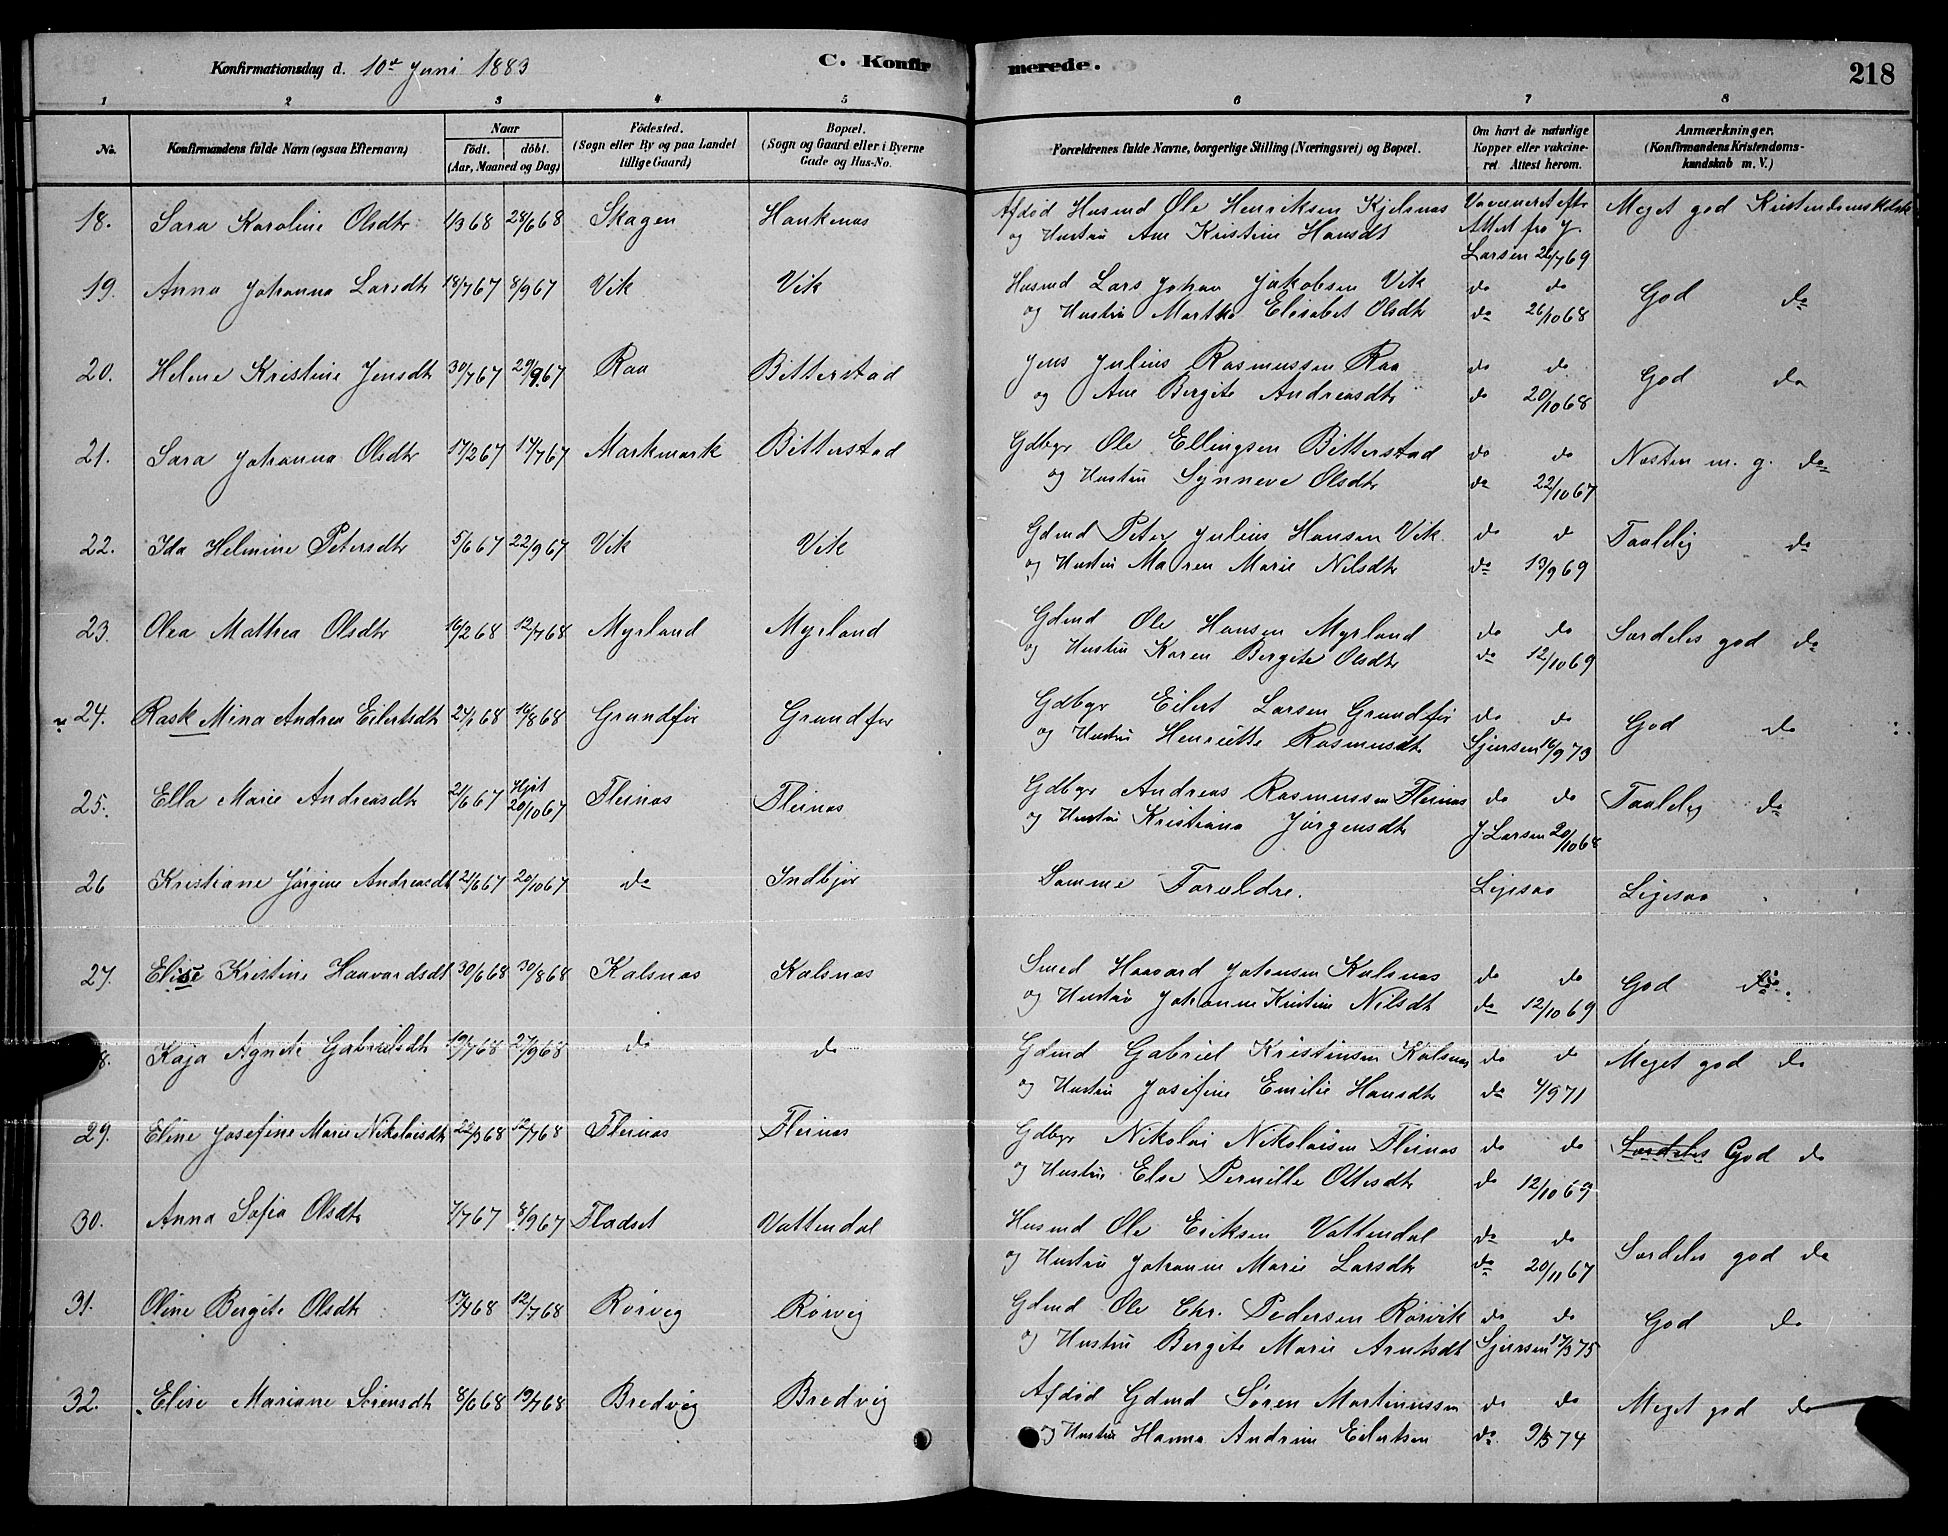 Konfirmationsdag d. 10de Juni 1883
C. Konfirmerede.
218
1 2 3 4 5 6 7 8
No.
Konfirmandens fulde Navn (ogsaa Efternavn)
Naar
født. døbt.
(Aar, Maaned og Dag)
Fødested.
(Sogn eller By og paa Landet
tillige Gaard)
Bopæl.
(Sogn og Gaard eller i Byerne
Gade og Hus-No.
Forældrenes fulde Navne, borgerlige Stilling (Næringsvei) og Bopæl.
Om havt de naturlige
Kopper eller vakcineret.
Attest herom.
Anmærkninger.
(Konfirmandens Kristendomskundskab
m. V.)
18. Sara Karoline Olsdtr 1/3 68 28/6 68 Skagen Haukenæs Afdød Husmd Ole Henriksen Kjelsnæs Vaccineret eftr Meget god Kristendomskdsk
og Hustru Ane Kristine Hansdt Attest fra J.
Larsen 26/7 69
19. Anna Johanna Larsdtr 18/7 67 8/9 67 Vik Vik Husmd Lars Johan Jakobsen Vik do do God do
og Hustru Martha Elisabet Olsdtr do 26/10 68
20. Helene Kristine Jensdtr 30/7 67 29/9 67 Raa Bitterstad Jens Julius Rasmussen Raa do do God do
og Ane Bergite Andreasdtr do 20/10 68
21. Sara Johanna Olsdtr 17/2 67 14/7 67 Markmark Bitterstad Gdbgr Ole Ellingsen Bitterstad do do Næsten m. g. do
og Hustru Synneve Olsdtr do 22/10 67
22. Ida Helmine Petersdtr 5/6 67 22/9 67 Vik Vik Gdmd Peter Julius Hansen Vik do do Taalelig do
og Hustru Maren Marie Nilsdtr do 13/9 69
23. Olea Mathea Olsdtr 16/2 68 12/7 68 Myrland Myrland Gdmd Ole Hansen Myrland do do Særdeles god do
og Hustru Karen Bergite Olsdtr do 12/10 69
24. Rask Mina Andrea Eilertsdtr 24/1 68 16/8 68 Grundfør Grundfør Gdbgr Eilert Larsen Grundfør do do God do
og Hustru Henriette Rasmusdtr Sjursen 16/9 73
25. Ella Marie Andreasdtr 21/6 67 Hjdt 20/10 67 Fleinæs Fleinæs Gdbgr Andreas Rasmussen Fleinæs do do Taalelig do
og Hustru Kristiana Jørgensdtr J Larsen 20/10 68
26 Kristiane Jørgine Andreasdt 21/6 67 20/10 67 do Indbjør Samme Forældre. Ligesaa Ligesaa
27. Elise Kristine Haavardsdt 30/6 68 30/8 68 Kalsnæs Kalsnæs Smed Haavard Johansen Kalsnæs do do God do.
og Hustru Johanne Kristine Nilsdt do 12/10 69
8. Kaja Agnete Gabrielsdtr 19/7 68 27/9 68 do do Gdmd Gabriel Kristensen Kalsnæs do do Meget god do
og Hustru Josefine Emilie Hansdtr do 4/9 71
29. Eline Josefine Marie Nikolaisdtr 22/3 68 12/7 68 Fleinæs Fleinæs Gdbgr Nikolai Nikolaisen Fleinæs do do Særdeles God do
og Hustru Else Pernille Ottesdtr do 12/10 69
30. Anna Sofia Olsdtr 7/7 67 8/9 67 Fladset Vattendal Husmd Ole Eriksen Vattendal do do Særdeles god do
og Hustru Johanne Marie Larsdtr do 20/11 67
31. Oline Bergite Olsdtr 17/4 68 12/7 68 Rørvig Rørvig Gdmd Ole Chr. Pedersen Rørvik do do God do
og Hustru Bergite Marie Arntsdt Sjursen 17/3 75
32. Elise Mariane Sørensdtr 8/6 68 19/7 68 Bredvig Bredvig Afdød Gdmd Søren Martinussen do do Meget god do
og Hustru Hanna Andrine Eilertsen do 9/5 74